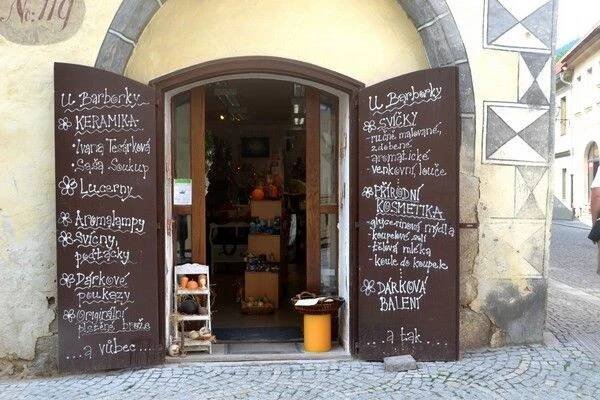 No: 119
U Barborky
KERAMIKA
Ivana Tesárková
Saša Soukup
Lucerny
Aromalampy
Svícny,
podtácky
Dárkové
poukazy
Originální
pletené brože
....a vůbec....
U Barborky
SVÍČKY
- ručně malované,
zdobené
- aromatické
- venkovní, louče
PŘÍRODNÍ
KOSMETIKA
- glycerinová mýdla
- koupelové soli
- tělová mléka
- koule do koupek
DÁRKOVÁ
BALENÍ
...a tak...